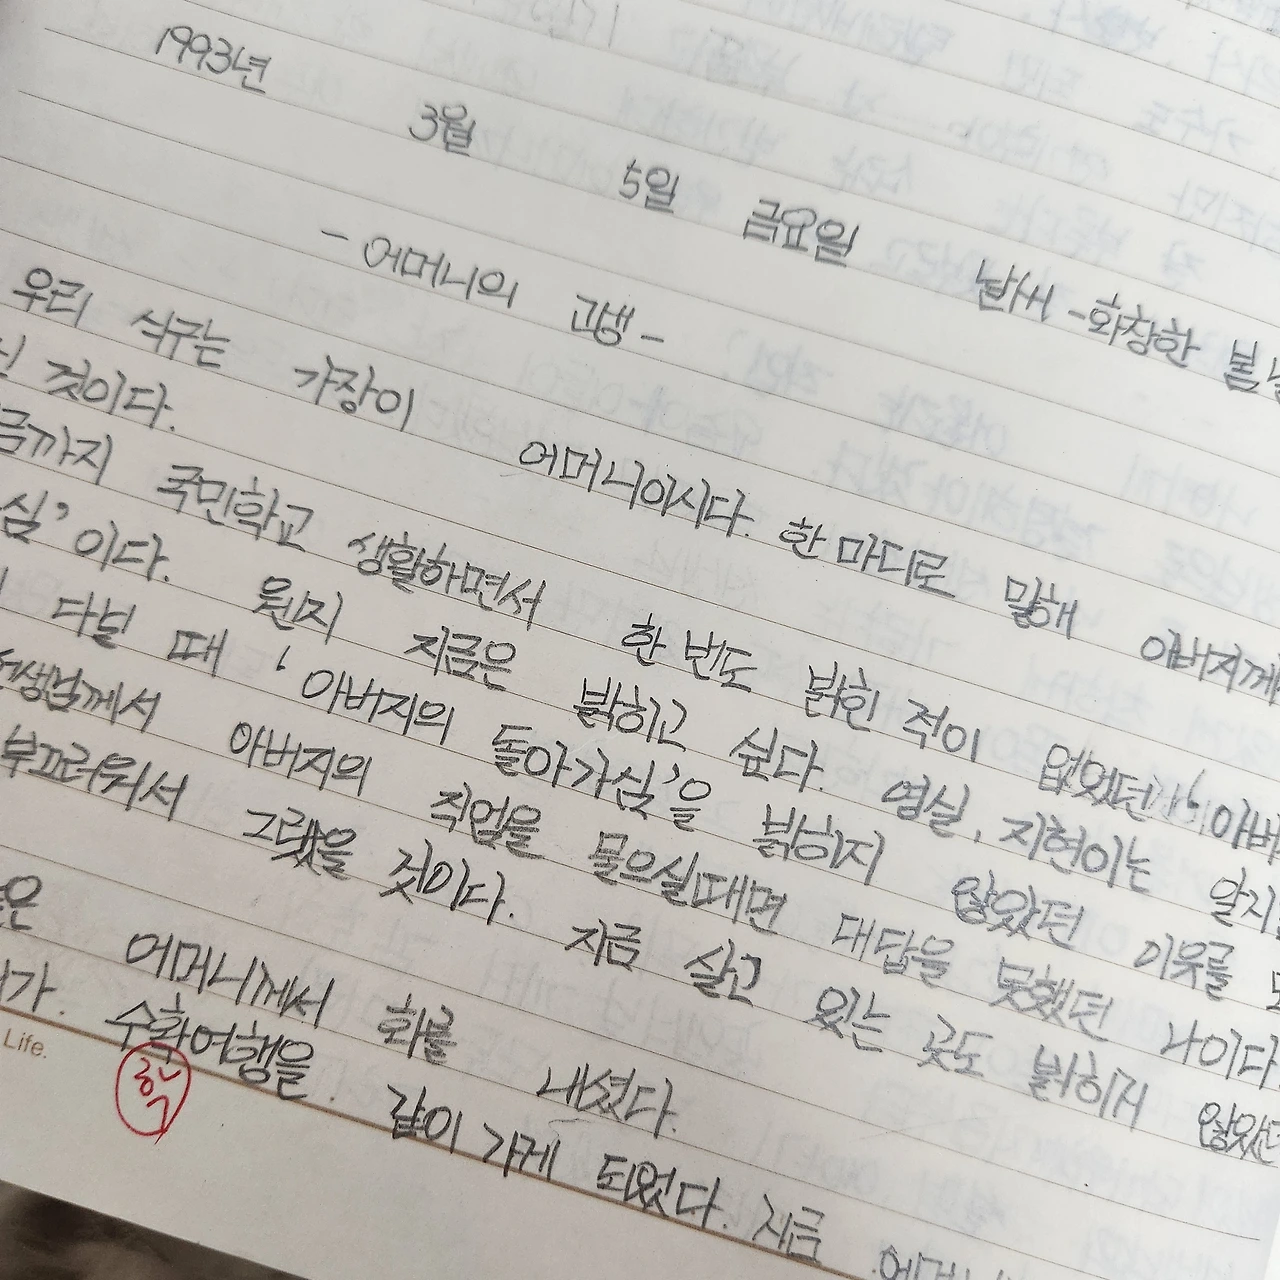 1993년 3월 5일 금요일 날씨 - 화창한 봄
- 어머니의 고생 -
우리 식구는 가장이 어머니이시다. 한 마디로 말해 아버지께
것이다.
금까지 국민학교 생활하면서 한 번도 밝힌 적이 없었던 '아버
심' 이다. 웬지 지금은 밝히고 싶다. 영실, 지현이는 알지
다닐 때 '아버지의 돌아가심'을 밝히지 않았던 이유를
선생님께서 아버지의 직업을 물으실때면 대답을 못했던 나이다
부끄러워서 그랬을 것이다. 지금 살고 있는 곳도 밝히지 않았던
은 어머니께서 화를 내셨다.
가. 수학여행을 같이 가게 되었다. 지금
Life.
학